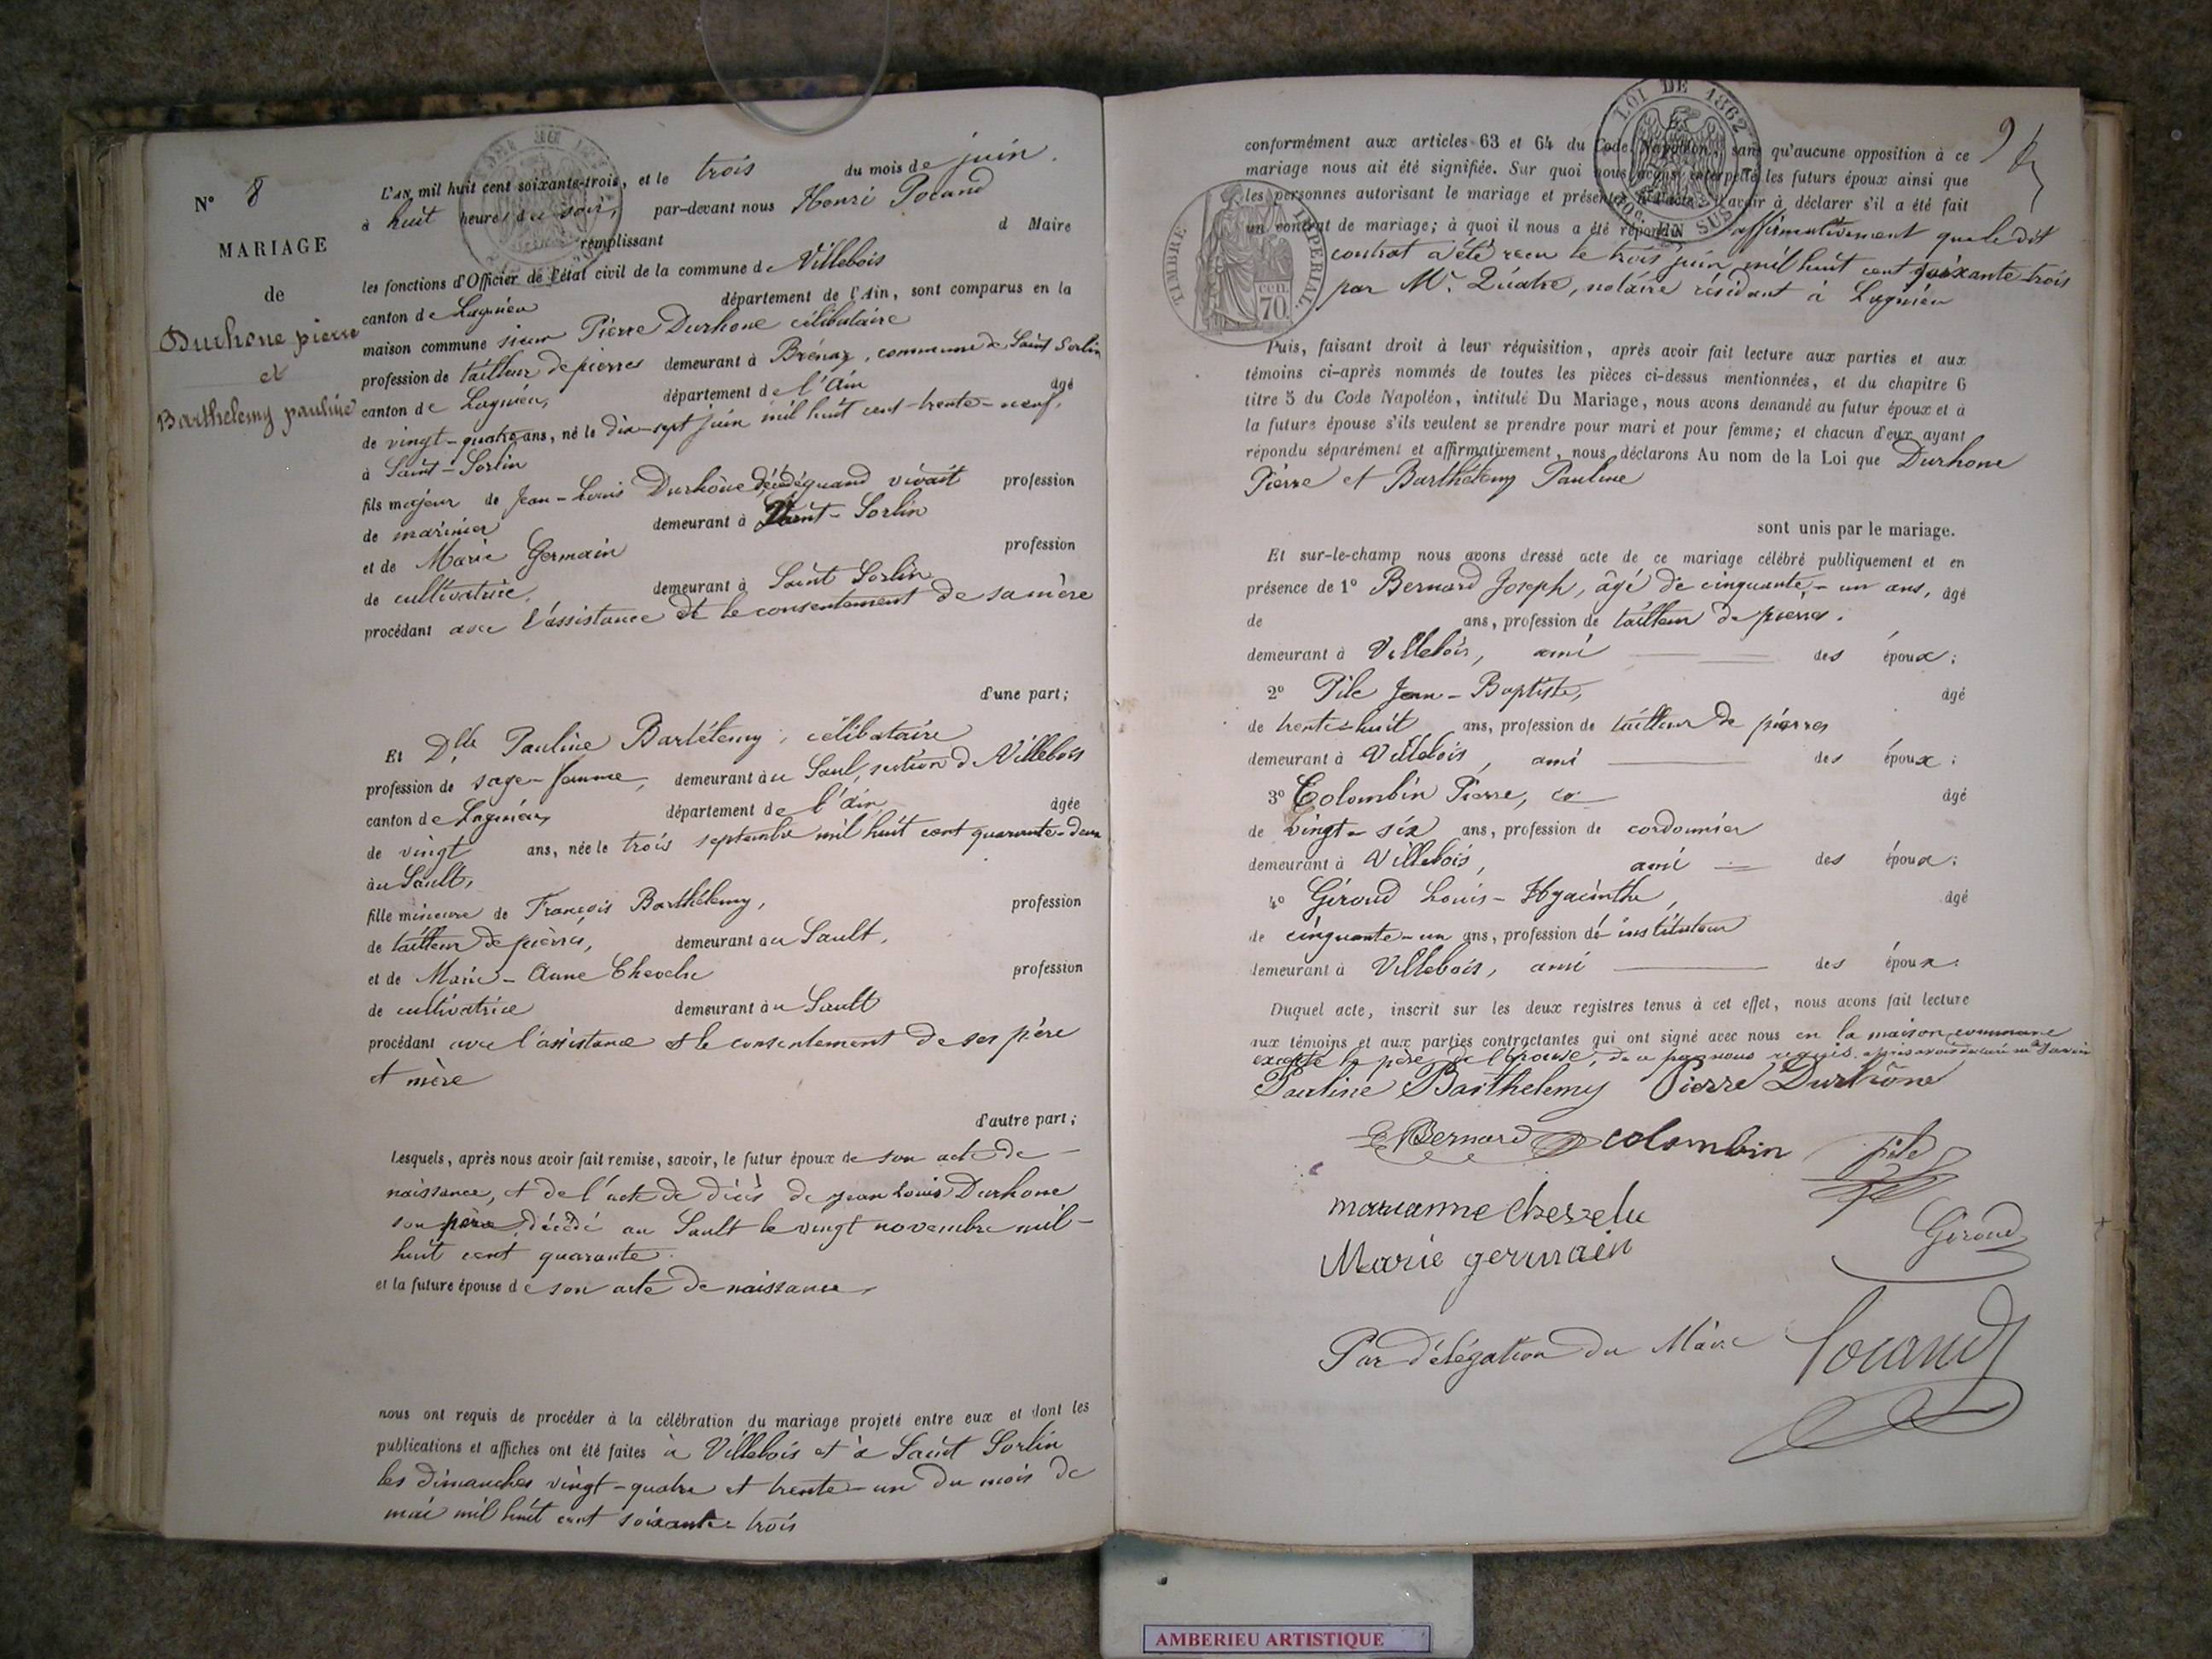 N° 8
MARIAGE
de
Durhone pierre
et
Barthelemy pauline
L'AN mil huit cent soixante-trois, et le trois du mois de juin.
à huit heures du soir, par-devant nous Henri Pocand
d Maire
remplissant
les fonctions d'Officier de l'état civil de la commune de Villebois
canton de Lagnieu département de l'Ain, sont comparus en la
maison commune sieur Pierre Durhone célibataire
profession de tailleur de pierres demeurant à Brénaz, commune de Saint Sorlin
canton de Lagnieu, département de l'Ain âgé
de vingt-quatre ans, né le dix-sept juin mil huit cent trente-neuf,
à Saint-Sorlin
fils majeur de Jean-Louis Durhône décédé quand vivait profession
de marinier demeurant à Saint-Sorlin
et de Marie Germain profession
de cultivatrice, demeurant à Saint Sorlin
procédant avec l'assistance et le consentement de sa mère
d'une part;
Et Dlle Pauline Bartélemy, célibataire
profession de sage-femme, demeurant au Saul, section de Villebois
canton de Lagnieu, département de l'ain âgée
de vingt ans, née le trois septembre mil huit cent quarante-deux
au Sault,
fille mineure de François Barthélemy, profession
de tailleur de pierres, demeurant au Sault,
et de Marie-Anne Chevelu profession
de cultivatrice demeurant au Sault
procédant avec l'assistance et le consentement de ses père
et mère
d'autre part;
Lesquels, après nous avoir fait remise, savoir, le futur époux de son acte de
naissance, et de l'acte de décès de Jean Louis Durhone
son père, décédé au Sault le vingt novembre mil-
huit cent quarante
et la future épouse de son acte de naissance,
nous ont requis de procéder à la célébration du mariage projeté entre eux et dont les
publications et affiches ont été faites à Villebois et à Saint Sorlin
les dimanches vingt-quatre et trente-un du mois de
mai mil huit cent soixante-trois
LOI DE 1862
9
conformément aux articles 63 et 64 du Code Napoléon, sans qu'aucune opposition à ce
mariage nous ait été signifiée. Sur quoi nous avons interpellé les futurs époux ainsi que
les personnes autorisant le mariage et présentes à l'acte, d'avoir à déclarer s'il a été fait
un contrat de mariage; à quoi il nous a été répondu affirmativement que le dit
contrat a été reçu le trois juin mil huit cent soixante trois
par Me. Quatre, notaire résidant à Lagnieu
TIMBRE IMPERIAL
70 cen.
EN SUS
Puis, faisant droit à leur réquisition, après avoir fait lecture aux parties et aux
témoins ci-après nommés de toutes les pièces ci-dessus mentionnées, et du chapitre 6
titre 5 du Code Napoléon, intitulé Du Mariage, nous avons demandé au futur époux et à
la future épouse s'ils veulent se prendre pour mari et pour femme; et chacun d'eux ayant
répondu séparément et affirmativement, nous déclarons Au nom de la Loi que Durhone
Pierre et Barthélemy Pauline
sont unis par le mariage.
Et sur-le-champ nous avons dressé acte de ce mariage célébré publiquement et en
présence de 1° Bernard Joseph, âgé de cinquante-un ans, âgé
de ans, profession de tailleur de pierres.
demeurant à Villebois, ami des époux;
2° Pile Jean-Baptiste, âgé
de trente-huit ans, profession de tailleur de pierres
demeurant à Villebois, ami des époux;
3° Colombin Pierre, âgé
de vingt-six ans, profession de cordonnier
demeurant à Villebois, ami des époux;
4° Giroud Louis-Hyacinthe, âgé
de cinquante-un ans, profession de instituteur
demeurant à Villebois, ami des époux.
Duquel acte, inscrit sur les deux registres tenus à cet effet, nous avons fait lecture
aux témoins et aux parties contractantes qui ont signé avec nous en la maison commune
excepté le père de l'épouse, de ce par nous requis, après avoir déclaré ne savoir
Pauline Barthelemy Pierre Durhône
Bernard colombin pile
marianne chevelu
Giroud
Marie germain
Par délégation du Maire Pocand
AMBERIEU ARTISTIQUE